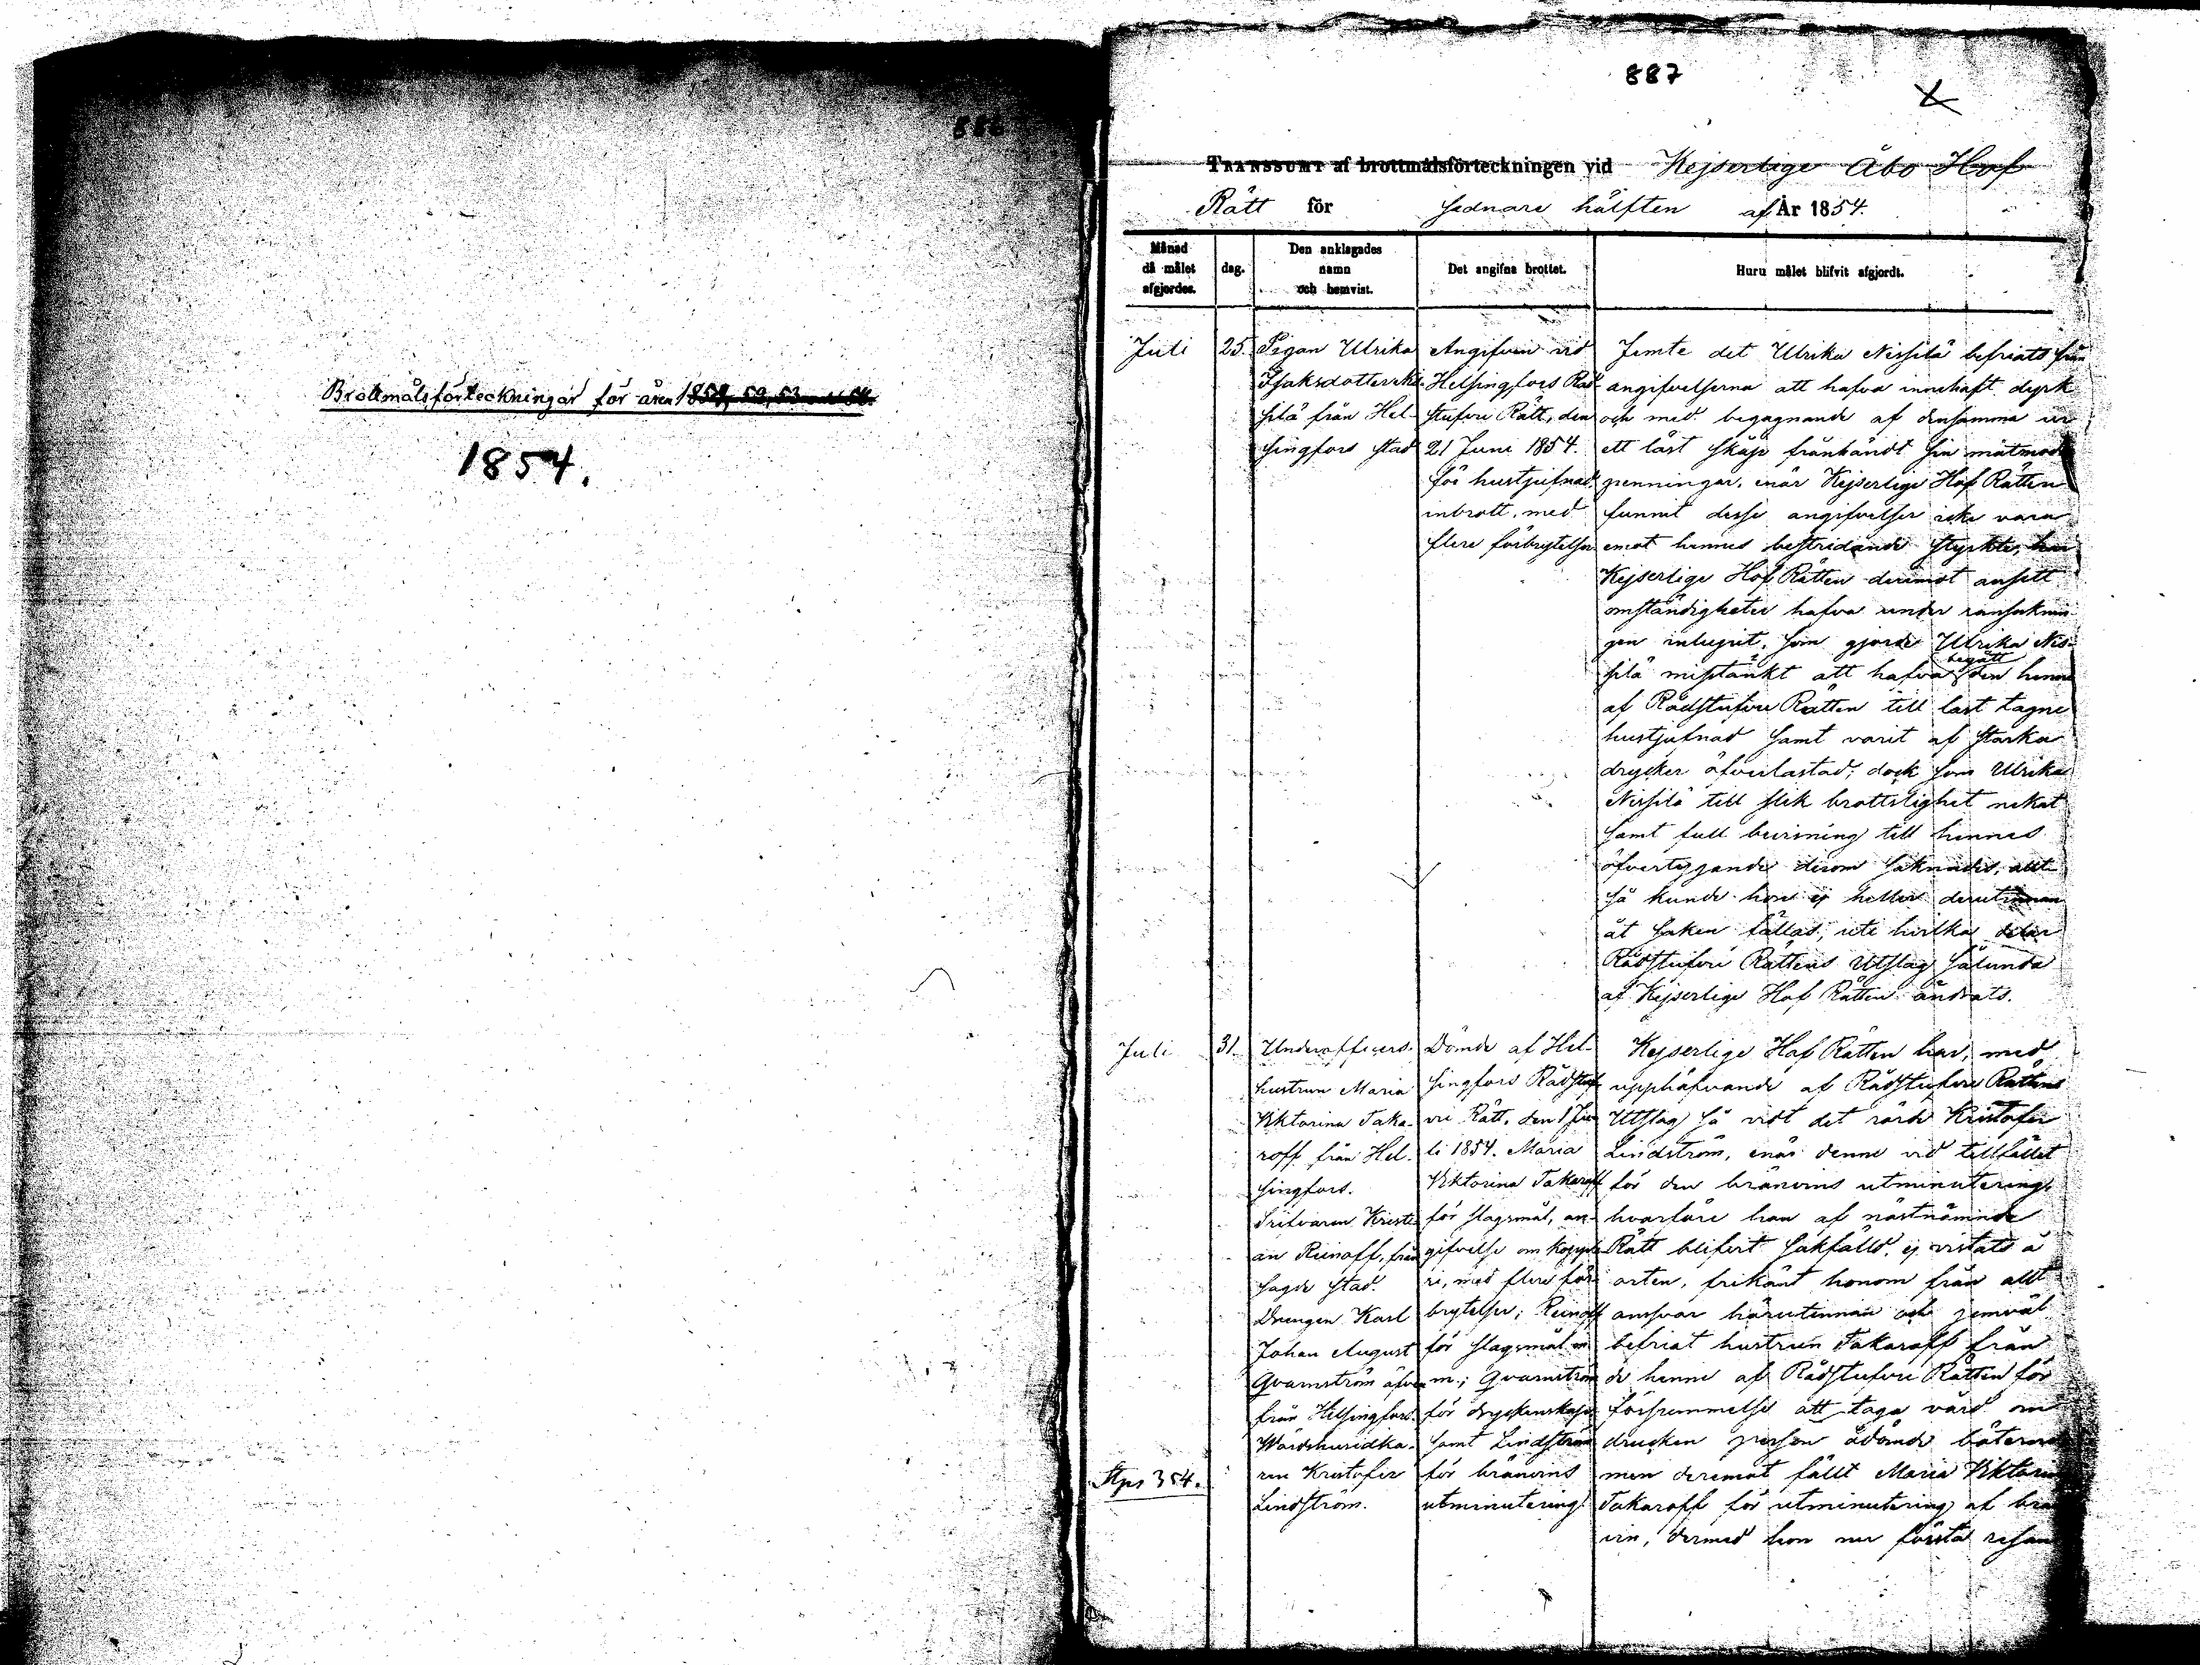 886
Brottmålsförteckningar för åren 1851, 52, 53 och 54.
1854.
887
TRANSSUMT af brottmålsförteckningen vid Kejserlige Åbo Hof
Rätt för sednare hälften af År 1854.
Månad
då målet
afgjordes.
dag.
Den anklagades
namn
och hemvist.
Det angifna brottet.
Huru målet blifvit afgjordt.
Juli
25.
Pigan Ulrika
Isaksdotter
silä från Hel-
singfors stad
Angifven vid
Helsingfors Råd-
stufvu Rätt, den
21 Juni 1854.
för hustjufnad,
inbrott, med
flere förbrytelser
Jemte det Ulrika Nissilä befriats från
angifvelserna att hafva innehaft dyrk
och med begagnande af densamma ur
ett låst skåp frånhändt sin matmoder
penningar, enär Kejserlige Hof Rätten
funnit desse angifvelser icke vara
emot hennes bestridande styrkte, har
Kejserlige Hof Rätten deremot ansett
omständigheter hafva under ransaknin-
gen inlupit, som gjorde Ulrika Nis-
silä misstänkt att hafva begått den henne
af Rådstufvu Rätten till last lagne
hustjufnad samt varit af starka
drycker öfverlastad; dock som Ulrika
Nissilä till slik brottslighet nekat
samt full bevisning till hennes
öfvertygande derom saknades, allt-
så kunde hon ej heller derutinnan
åt saken fällas, uti hvilka delar
Rådstufvu Rättens Utslag sålunda
af Kejserlige Hof Rätten ändrats.
Juli
31.
Underofficers-
hustrun Maria
Viktorina Taka-
roff från Hel-
singfors.
Kristi-
an Reinoff, från
sagde stad.
Drengen Karl
Johan August
Qvarnström äfven
från Helsingfors.
Wärdshusidka-
ren Kristofer
Lindström.
Dömde af Hel-
singfors Rådstuf-
vu Rätt, den 1 Ju-
li 1854. Maria
Viktorina Takaroff
för slagsmål, an-
gifvelse om koppleri
ri, med flere för-
brytelser; Reinoff
för slagsmål m.
m.; Qvarnström
för dryckenskap
samt Lindström
för bränvins
utminutering.
Kejserlige Hof Rätten har, med
upphäfvande af Rådstufvu Rättens
Utslag så vidt det rörde Kristofer
Lindström, enär denne vid tillfället
för den bränvins utminutering,
hvarföre han af nästnämnde
Rätt blifvit sakfälld, ej vistats å
orten, frikänt honom från allt
ansvar härutinnan och jemväl
befriat hustrun Takaroff från
de henne af Rådstufvu Rätten för
försummelse att taga vård om
drucken person ådömde böterne
men deremot fällt Maria Viktorina
Takaroff för utminutering af brän-
vin, dermed hon nu första resan
Stps 354.